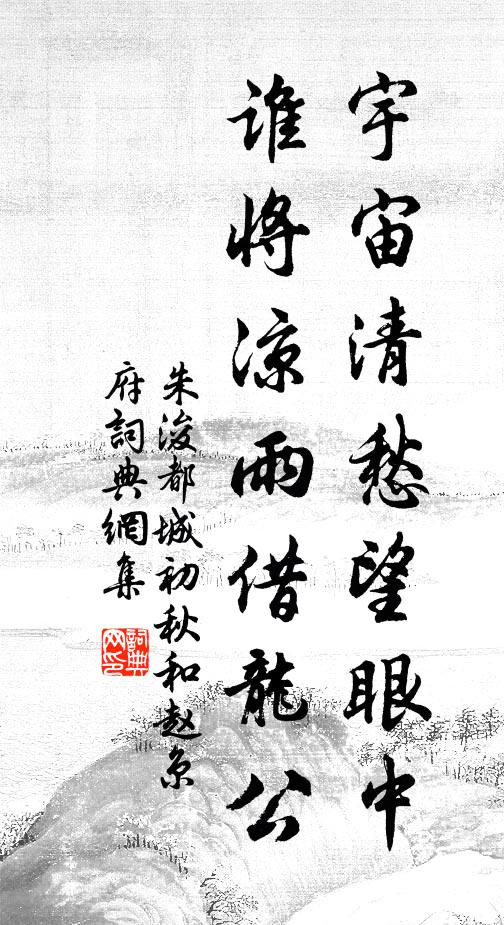 宇宙清愁望眼中
谁将凉雨借龍公
朱浚都城初秋和趙京
府詞典網集
詞典网印